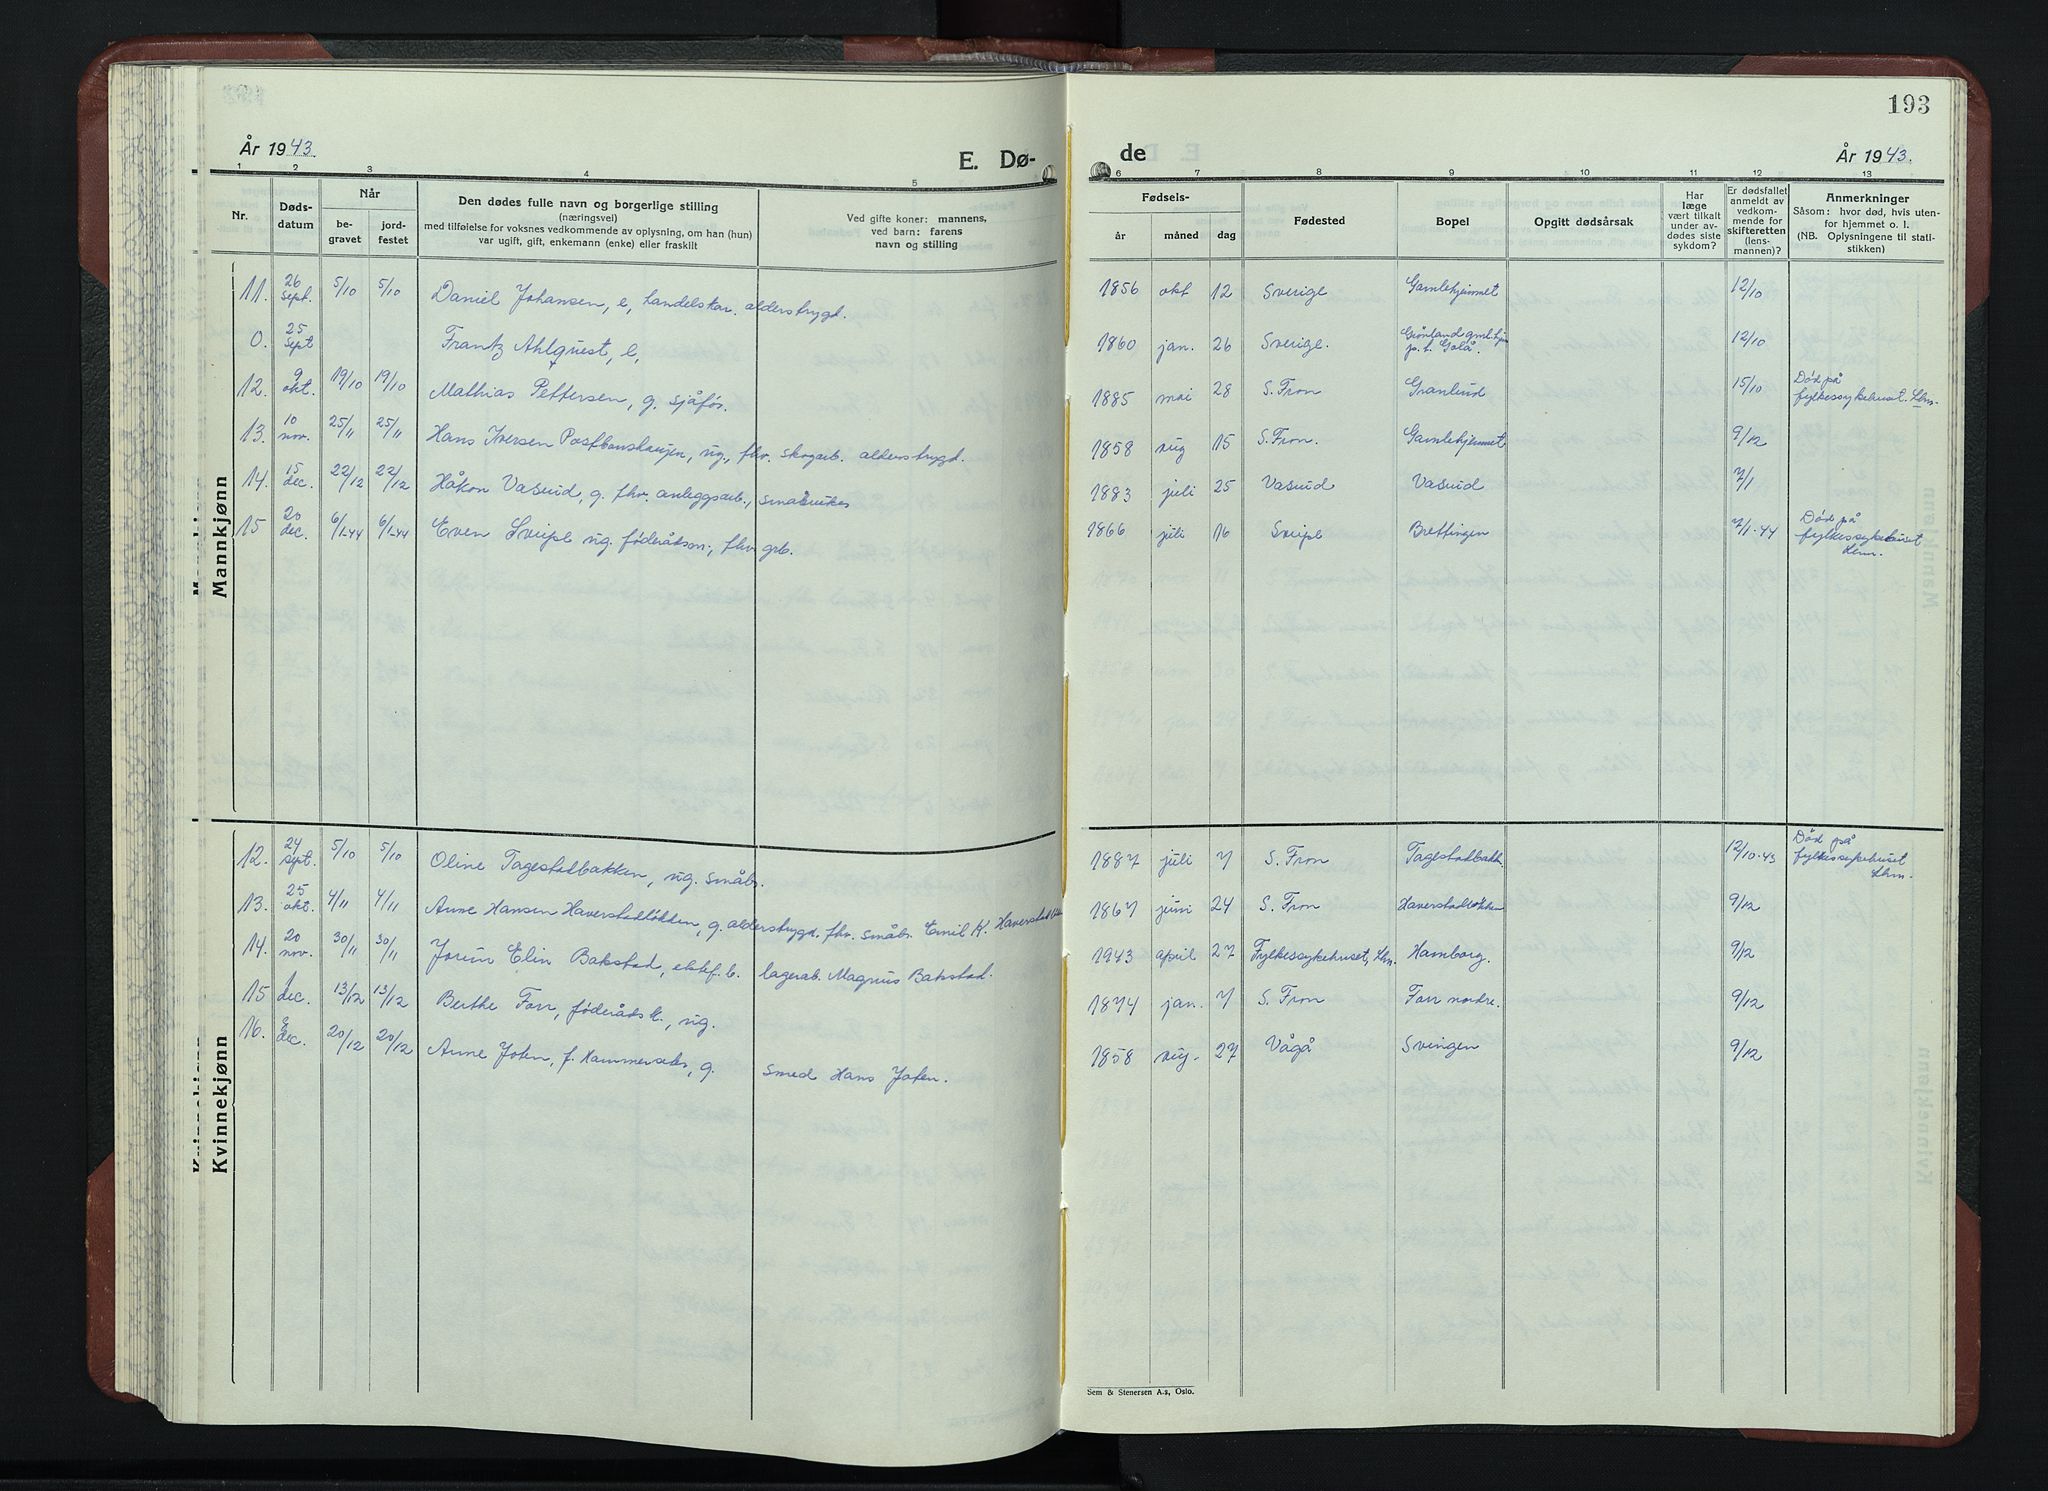 193
År 1943.
E. Dø-
de
År 1943.
1 2 3 4 5 6 7 8 9 10 11 12 13
Nr.
Døds-
datum
Når
be-
gravet
jord-
festet
Den dødes fulle navn og borgerlige stilling
(næringsvei)
med tilføielse for voksnes vedkommende av oplysning, om han (hun)
var ugift, gift, enkemann (enke) eller fraskilt
Ved gifte koner: mannens,
ved barn: farens
navn og stilling
Fødsels-
år måned dag
Fødested
Bopel
Opgitt dødsårsak
Har
læge
vært tilkalt
under av-
dødes siste
sykdom?
Er dødsfallet
anmeldt av
vedkom-
mende for
skifteretten
(lens-
mannen)?
Anmerkninger
Såsom: hvor død, hvis uten-
for hjemmet o. l.
(NB. Oplysningene til stati-
stikken)
Mannkjønn
11. 26 sept. 5/10 5/10 Daniel Johansen, e, handelskar. alderstrygd. 1856 okt 12 Sverige Gamlehjemmet 12/10
0. 25 sept Frantz Ahlquest, e, 1860 jan. 26 Sverige. Grønland gmlhj. p.t. Golå. 12/10
12. 9 okt. 19/10 19/10 Mathias Pettersen, g. sjåfør. 1885 mai 28 S. Fron Granlund 15/10 Død på fylkessykehuset. Lhm.
13. 10 nov. 25/11 25/11 Hans Iversen ug., fhv. skogarb. alderstrygd. 1858 aug 15 S. Fron. Gamlehjemmet 9/12
14. 15 dec. 22/12 22/12 Håkon Vasrud, g. fhv. anleggsarb., småbruker 1883 juli 25 Vasrud Vasrud 7/1
15 20 dec. 6/1-44 6/1-44 Even Sveipe ug. føderåtsm., fhv. grb. 1866 juli 16 Sveipe Brettingen 7/1-44 Død på fylkessykehuset Lhm.
Kvinnekjønn
12. 24 sept. 5/10 5/10 Oline Tagestadbakken, ug. småbr. 1887 juli 7 S. Fron Tagestadbakk. 12/10-43 Død på fylkessykehuset Lhm.
13. 25 okt. 4/11 4/11 Anne Hansen Haverstadløkken, g. alderstrygd. fhv. småbr. Emil K. Haverstadløkken 1867 juni 24 S. Fron Haverstadløkken 9/12
14. 20 nov. 30/11 30/11 Jorun Elin Bakstad, ektef. b. lagerarb. Magnus Bakstad. 1943 april 27 Fylkessykehuset, Lhm. Hamborg. 9/12
15 1 dec. 13/12 13/12 Berthe Forr, føderådsk., ug. 1874 jan. 7 S. Fron Forr nordre. 9/12
16. 8 dec. 20/12 20/12 Anne Joten, f. Hammerseter, g. smed Hans Joten. 1858 aug. 27 Vågå Svingen 9/12
Sem & Stenersen A.s, Oslo.